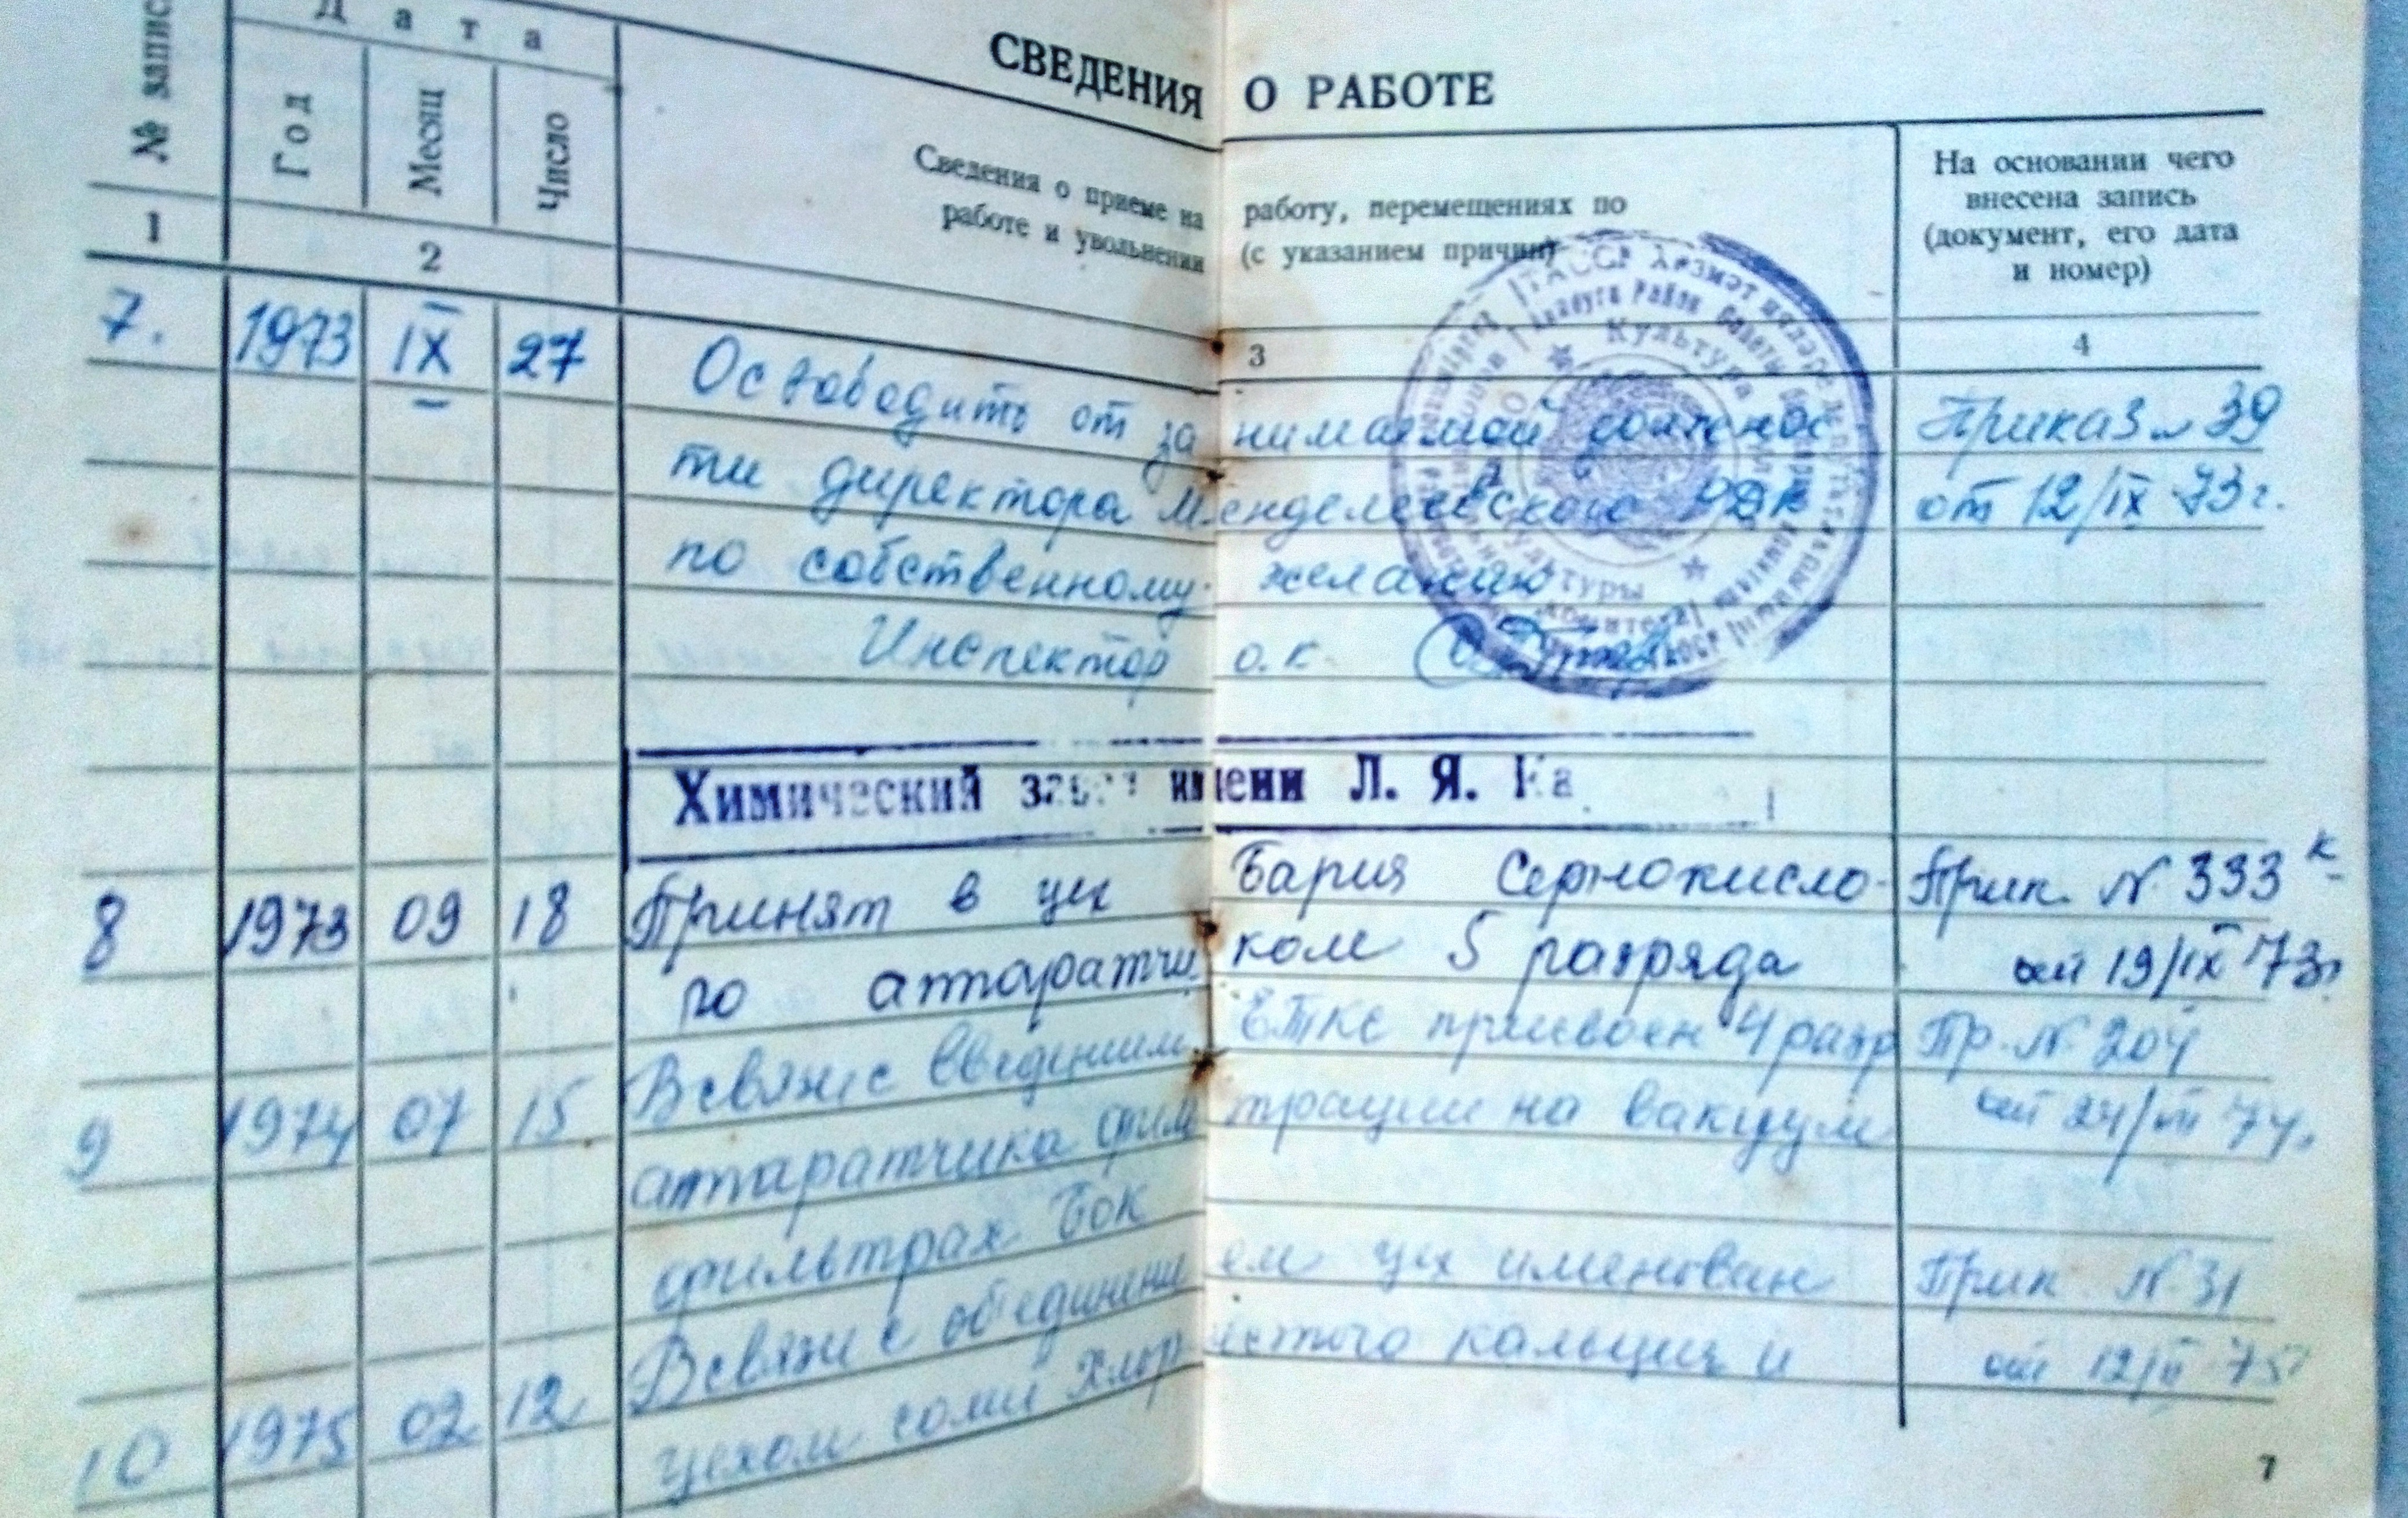 СВЕДЕНИЯ О РАБОТЕ
№ запис
Дата
Год
Месяц
Число
Сведения о приеме на работу, перемещениях по
работе и увольнении (с указанием причин)
На основании чего
внесена запись
(документ, его дата
и номер)
1 2 3 4
7. 1973 IX 27 Освободить от занимаемой должнос Приказ № 39
ти директора Менделеевского РДК от 12/IX 73г.
по собственному желанию
Инспектор о.к.
Химический завод имени Л. Я. Ка
8 1973 09 18 Принят в цех Бария Сернокисло- Прик. N 333 к
го аппаратчиком 5 разряда от 19/IX 73г.
9 1974 07 15 В связи с введением ЕТКС присвоен 4 разр Пр. N 204
аппаратчика фильтрации на вакуум от 24/VII 74г.
фильтрах БОК
10 1975 02 12 В связи с объединением цех именован Прик N 31
цехом соли Хлористого кальция и от 12/II 75
7
ТАССР
Культура
культуры